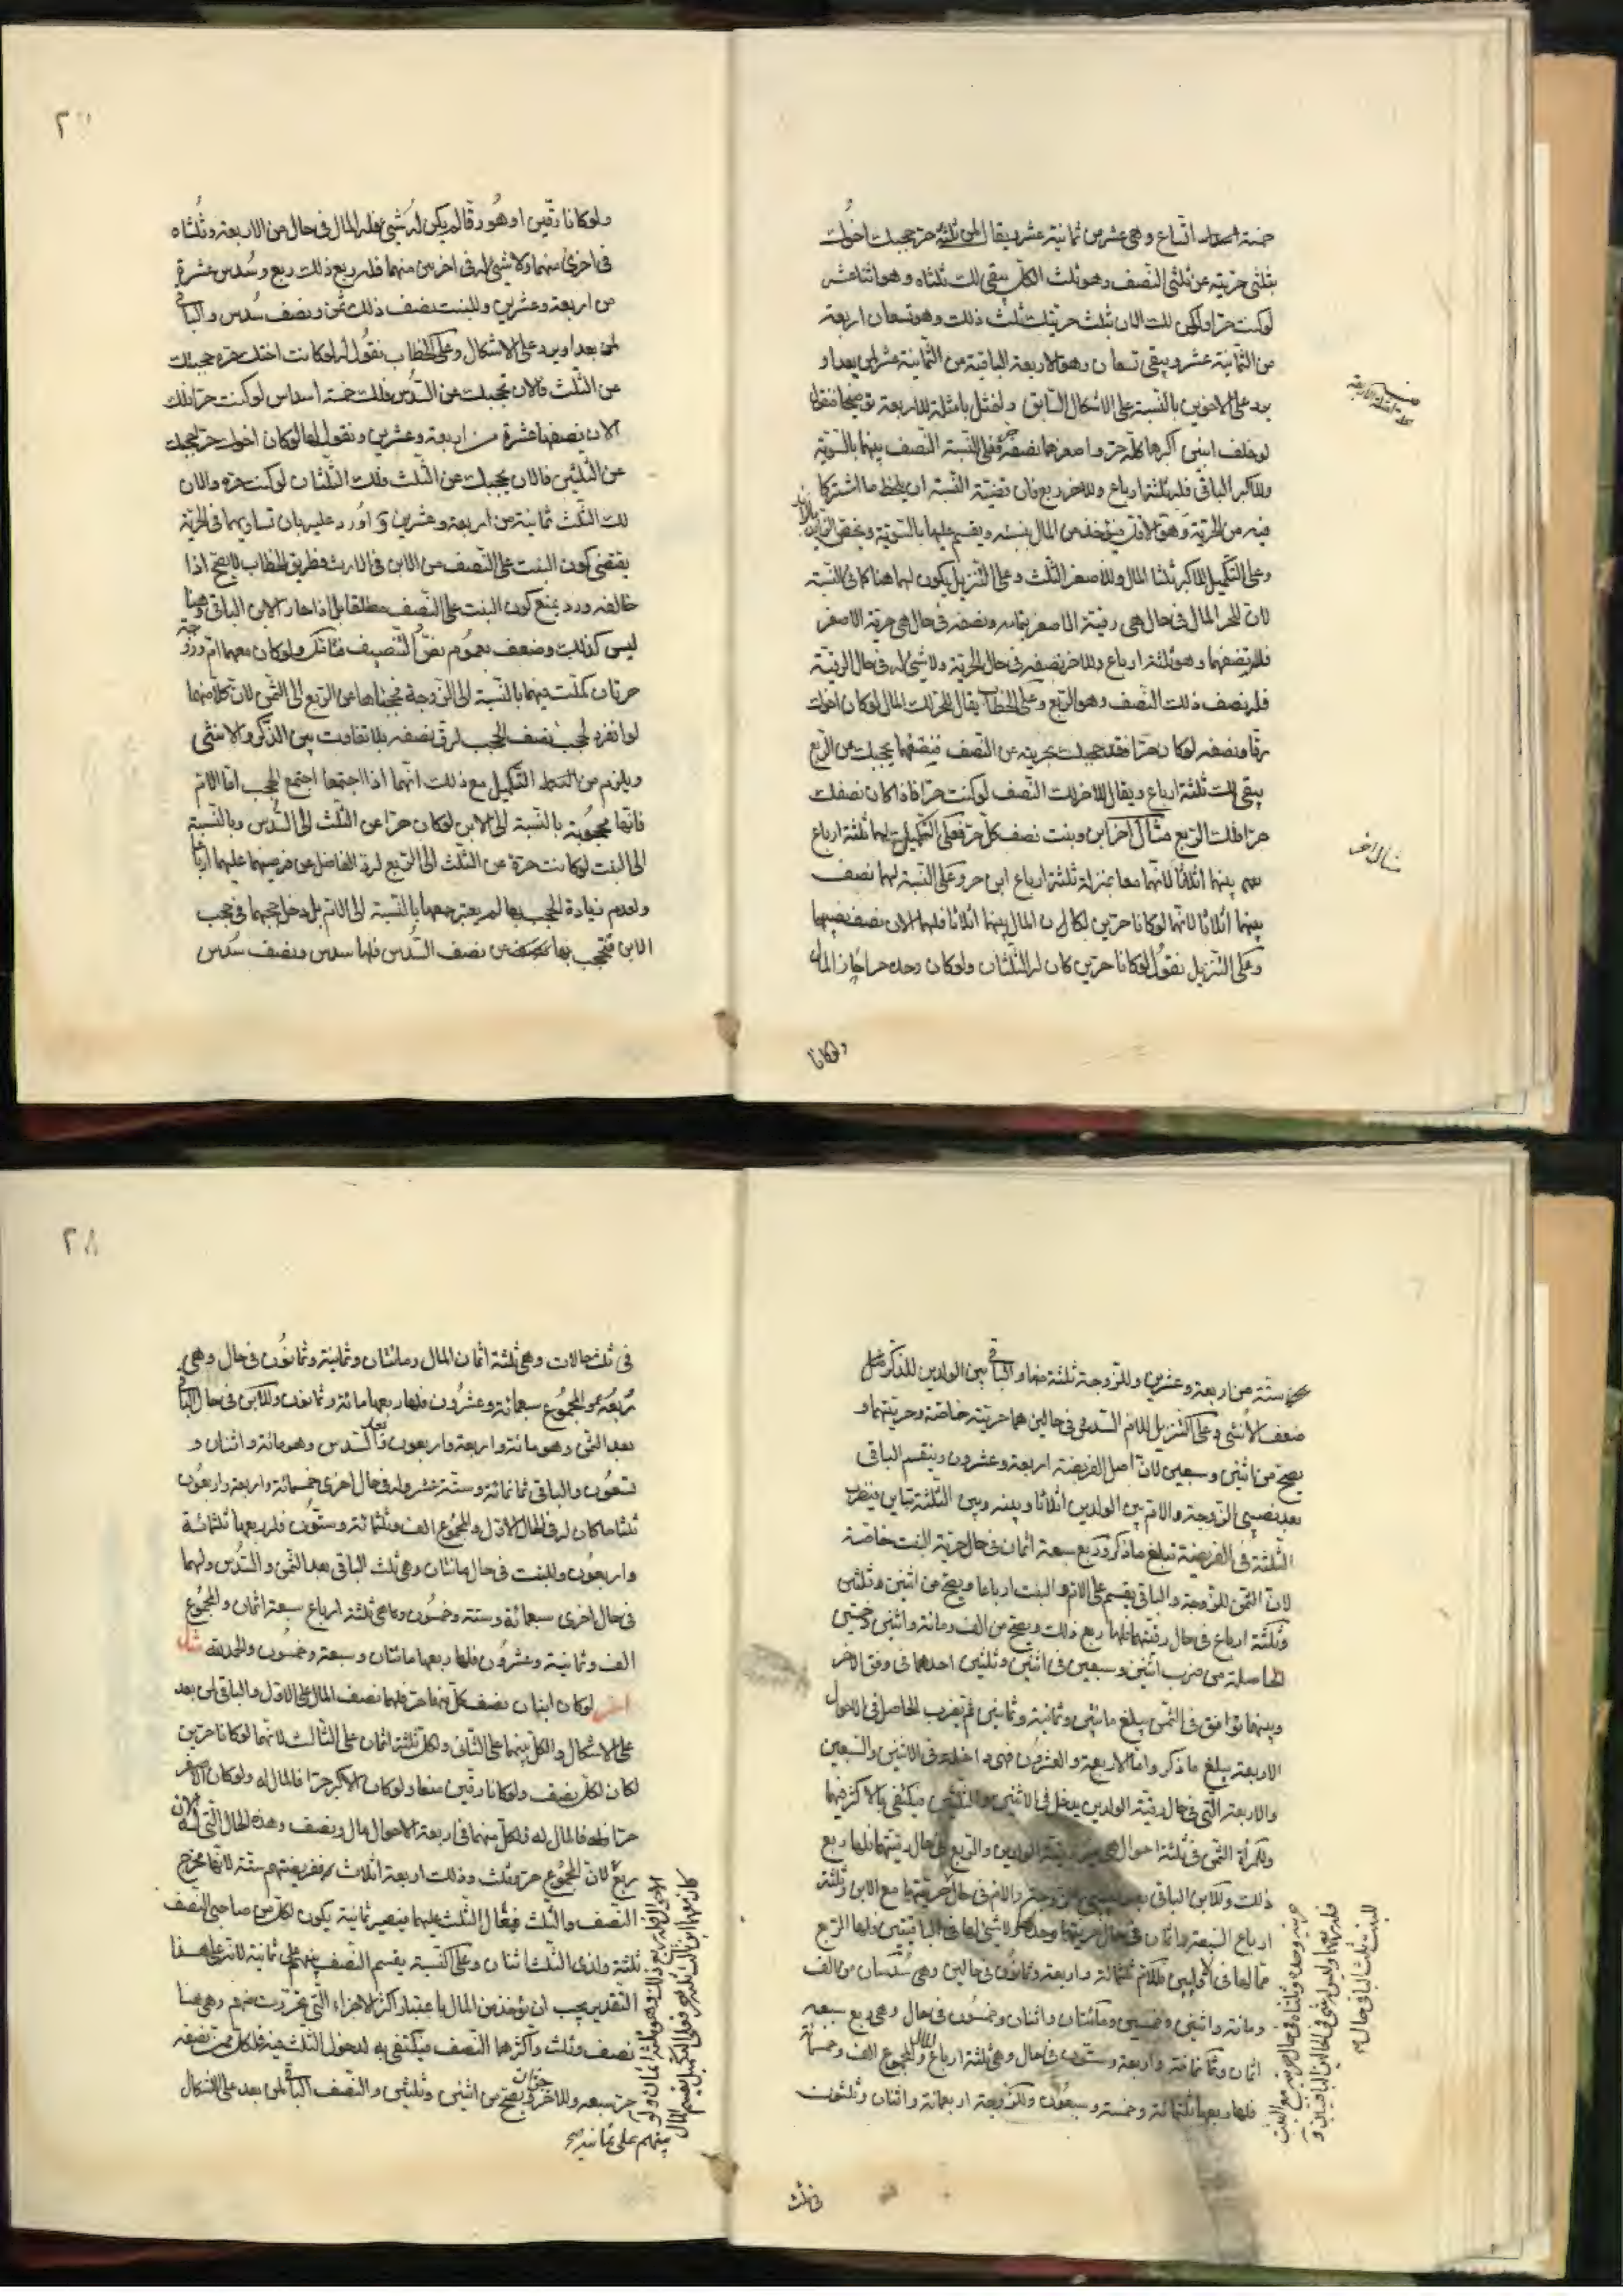 خمسة اتساع وهي عشر من ثمانية عشر ويقال لمن ثلثه حر حجبك اخوك
بثلثي حريته عن ثلثي النصف وهو ثلث الكل يبقى لك ثلثاه وهو اثنا عشر
لو كنت حرا ولكن لك الان بثلث حريتك ثلث ذلك وهو تسعان اربعة
من الثمانية عشر ويبقى تسعان وهو الاربعة الباقية من الثمانية عشر لمن بعد او
يرد على الاخوين بالنسبة على الاشكال السابق ولنمثل بامثلة للاربعة توضيحا فنقول
لو خلف ابنين اكبرهما كله حر واصغرهما نصفه فعلى النسبة النصف بينهما بالسوية
وللاكبر الباقي فله ثلثة ارباع وللاخر ربع فان قضية النسبة ان يلحظ ما اشتركا
فيه من الحرية وهو الاقل فيؤخذ من المال بنسبته ويقسم عليهما بالسوية ويختص
وعلى التكميل للاكبر ثلثا المال وللاصغر الثلث وعلى التنزيل يكون لهما هنا كما في النسبة
لان للحر المال في حال هي رقية الاصغر بتمامه ونصفه في حال هي حرية الاصغر
فله نصفهما وهو ثلثة ارباع وللاخر نصفه في حال الحرية ولا شيء له في حال الرقية
فله نصف ذلك النصف وهو الربع وعلى الخطاب يقال للحر لك المال لو كان اخوك
رقا ونصفه لو كان حرا فقد حجبك بحريته عن النصف فنصفها يحجبك عن الربع
يبقى لك ثلثة ارباع ويقال للاخر لك النصف لو كنت حرا فاذا كان نصفك
حرا فلك الربع مثال اخر ابن وبنت نصف كل حر فعلى التكميل لهما ثلثة ارباع
بينهما اثلاثا لانهما معا بمنزلة ثلثة ارباع ابن حر وعلى النسبة لهما نصف
بينهما اثلاثا لانهما لو كانا حرين لكان المال بينهما اثلاثا فلهما الان نصف نصيبهما
وعلى التنزيل نقول لو كانا حرين كان له الثلثان ولو كان وحده حرا جاز المال
مثال اخر
ولو كانا
ولو كانا رقين او هو رقا لم يكن له شيء فله المال في حال من الاربعة وثلثاه
في اخرى منهما ولا شيء له في اخريين منهما فله ربع ذلك ربع وسدس عشرة
من اربعة وعشرين وللبنت نصف ذلك ثمن ونصف سدس والباقي
لمن بعد او يرد على الاشكال وعلى الخطاب نقول له لو كانت اختك حرة حجبتك
عن الثلث فالان تحجبك عن السدس فلك خمسة اسداس لو كنت حرا فلك
الان نصفها عشرة من اربعة وعشرين ونقول لها لو كان اخوك حرا لحجبك
عن الثلثين فالان يحجبك عن الثلث فلك الثلثان لو كنت حرة والان
لك الثلث ثمانية من اربعة وعشرين واورد عليه بان تساويهما في الحرية
يقتضي كون البنت على النصف من الابن في الارث فطريق الخطاب لا يصح اذا
خالفه ورد بمنع كون البنت على النصف مطلقا بل اذا حاز الابن الباقي وهنا
ليس كذلك وضعف بعموم نص التنصيف ولو كان معهما ام وزوجة
حرتان كملت حريتهما بالنسبة الى الزوجة فحجباها عن الربع الى الثمن لان كلا منهما
لو انفرد لحجب نصف الحجب لرق نصفه بلا تفاوت بين الذكر والانثى
ويلزم من التكميل مع ذلك انهما اذا اجتمعا اجتمع الحجب اما الام
فانها محجوبة بالنسبة الى الابن لو كان حرا عن الثلث الى السدس وبالنسبة
الى البنت لو كانت حرة عن الثلث الى الربع لرد الفاضل عن فرضيهما عليهما ارباعا
ولعدم زيادة الحجب بها لم يعتبر جمعها بالنسبة الى الام بل دخل حجبهما في حجب
الابن فتحجب بها عن نصف السدس فلها سدس ونصف سدس
ستة من اربعة وعشرين وللزوجة ثلثة منها والباقي بين الولدين للذكر مثل
ضعف الانثى وعلى التنزيل للام السدس في حالين هما حريته خاصة وحريتهما و
يصح من اثنين وسبعين لان اصل الفريضة اربعة وعشرون وينقسم الباقي
بعد نصيبي الزوجة والام بين الولدين اثلاثا وبينه وبين الثلثة تباين فيضرب
الثلثة في الفريضة تبلغ ما ذكر وربع سبعة اثمان في حال حرية البنت خاصة
لان الثمن للزوجة والباقي يقسم على الام والبنت ارباعا ويصح من اثنين وثلثين
وثلثة ارباع في حال رقيتهما فلها ربع ذلك ويصح من الف ومائة واثنين وخمسين
الحاصلة من ضرب اثنين وسبعين في اثنين وثلثين احدهما في وفق الاخر
وبينهما توافق في الثمن يبلغ مائتين وثمانية وثمانين ثم يضرب الحاصل في الاحوال
الاربعة يبلغ ما ذكر واما الاربعة والعشرون فهي داخلة في الاثنين والسبعين
والاربعة التي في حال رقية الولدين يدخل في الاثنين والثلثين فيكتفي بالاكثر فيهما
وللمرأة الثمن في ثلثة احوال رقية الولدين والربع في حال رقيتهما فلها ربع
ذلك وللابن الباقي بعد الزوجة والام في حال حريتها مع الابن وثلثة
ارباع السبعة اثمان في حال حريتها وحدها ولا شيء لها في الباقيتين فلها الربع
مما لها في الاوليين فللام ثلثمائة واربعة وثمانون في حالين وهي سدسان من الف
ومائة واثنين وخمسين ومائتان واثنان وخمسون في حال وهي ربع سبعة
اثمان وثمانمائة واربعة وستون في حال وهي ثلثة ارباع المال والمجموع الف وخمسمائة
فلها ربعها ثلثمائة وخمسة وسبعون وللزوجة اربعمائة واثنان وثلثون
في ثلث
٢٨
في ثلث حالات وهي ثلثة اثمان المال ومائتان وثمانية وثمانون في حال وهي
ربعه والمجموع سبعمائة وعشرون فلها ربعها مائة وثمانون وللابن في حال الباقي
بعد الثمن وهو مائة واربعة واربعون وبعد السدس وهو مائة واثنان و
تسعون والباقي ثمانمائة وستة عشر وله في حال اخرى خمسمائة واربعة واربعون
ثلثا ما كان له في الحال الاول والمجموع الف وثلثمائة وستون فله ربعها ثلثمائة
واربعون وللبنت في حال مائتان وهي ثلث الباقي بعد الثمن والسدس ولها
في حال اخرى سبعمائة وستة وخمسون وهي ثلثة ارباع سبعة اثمان والمجموع
الف وثمانية وعشرون فلها ربعها مائتان وسبعة وخمسون والحمد لله مثال
اخر لو كان ابنان نصف كل منهما حر فلهما نصف المال على الاول والباقي لمن بعد
على الاشكال والكل بينهما على الثاني ولكل ثلثة اثمان على الثالث لانهما لو كانا حرين
لكان لكل نصف ولو كانا رقين منعا ولو كان الاكبر حرا فالمال له ولو كان الاصغر
حرا فالمال له فلكل منهما في اربعة الاحوال مال ونصف وهذه الحال التي له الان
ربع لان المجموع حر وثلث وذلك اربعة اثلاث ففريضتهم ستة لانها مخرج
النصف والثلث فيعال الثلث عليهما فيصير ثمانية يكون لكل من صاحبي النصف
ثلثة ولذي الثلث اثنان وعلى النسبة يقسم النصف بينهم على ثمانية لانه على هذا
التقدير يجب ان يؤخذ من المال باعتبار اكثر الاجزاء التي تحررت منهم وهي هنا
نصف وثلث واكثرهما النصف فيكتفى به لدخول الثلث فيه فلكل ممن نصفه
حر سبعه وللاخر ويصح من اثنين وثلثين والنصف الباقي لمن بعد على الاشكال
بينهم على ثمانية صح